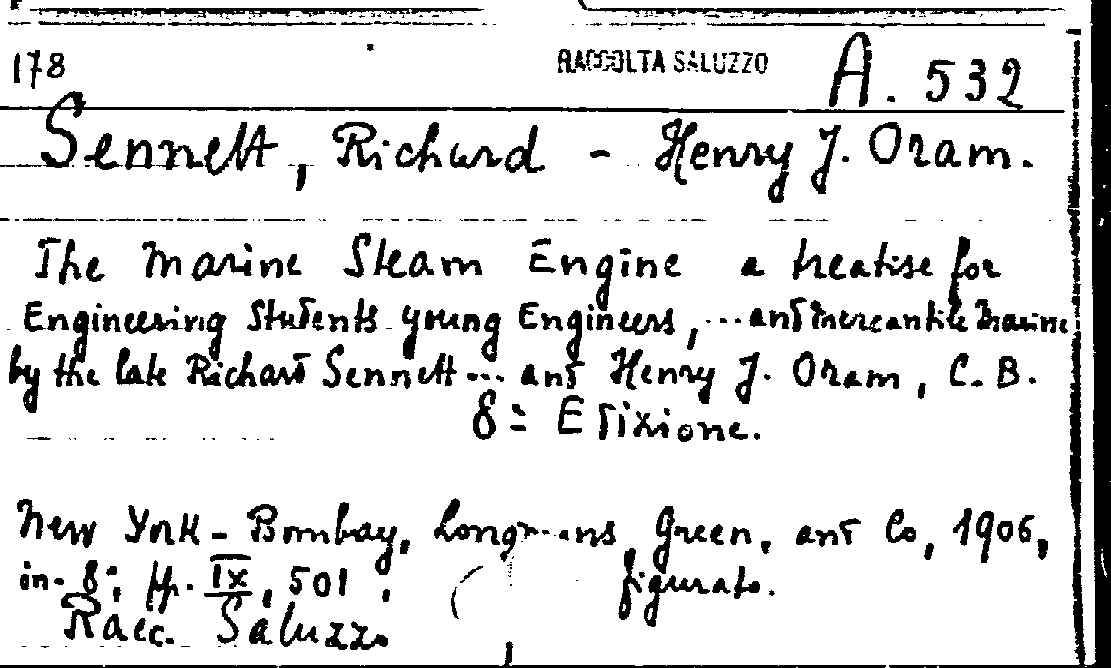 178 RACCOLTA SALUZZO A. 532
Sennett, Richard - Henry J. Oram.
The Marine Steam Engine a treatise for
Engineering Students young Engineers, ... and mercantile marine
by the late Richard Sennett ... and Henry J. Oram, C. B.
8ª Edizione.
New York - Bombay, Longmans, Green, and Co, 1906,
in-8°, pp. IX, 501, figurato.
Racc. Saluzzo